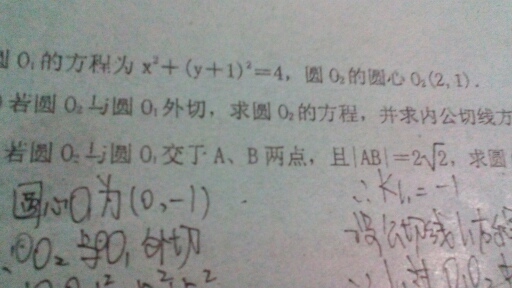 圆 O₁ 的方程为 x²+(y+1)²=4，圆 O₂ 的圆心 O₂(2,1).
若圆 O₂ 与圆 O₁ 外切，求圆 O₂ 的方程，并求内公切线方
若圆 O₂ 与圆 O₁ 交于 A、B 两点，且|AB|=2√2，求圆
圆心O₁为(0,-1) ∴Kl₁=-1
⊙O₂与O₁外切 设公切线l₁方程